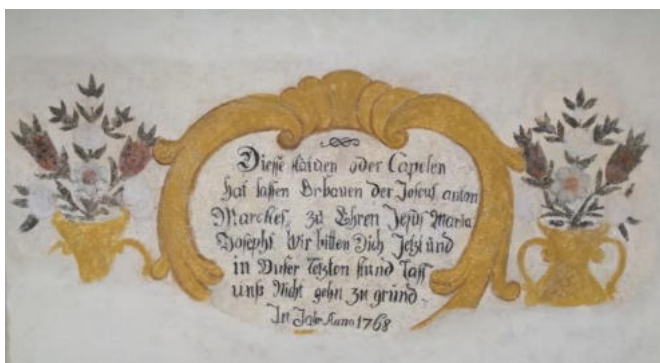 Dieße oder Capelen
hat laßen Erbauen der Joseus anton
Marckes, zu Ehren Jesus Maria
Josephs Wir bitten Dich Jetzt und
in Unser letzten stund laß
unß Nicht gehn zu grund
In Jahr Anno 1768